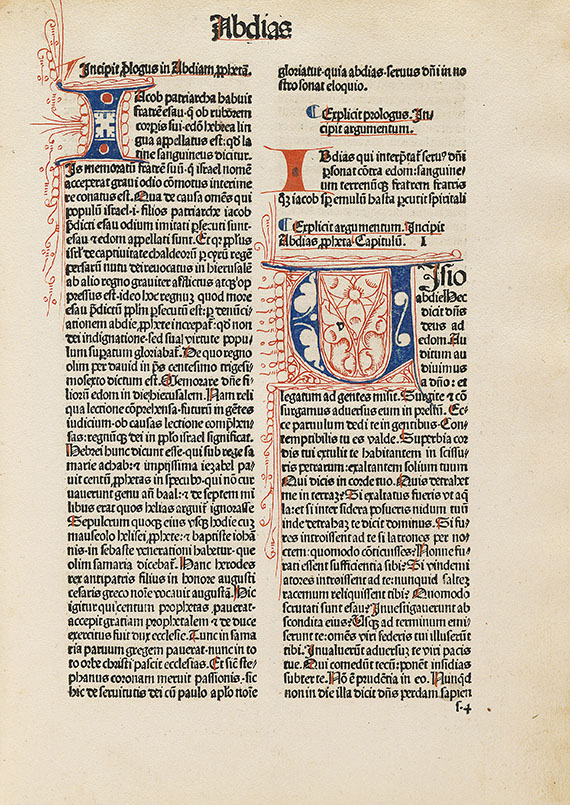 Abdias
Incipit ꝓlogus in Abdiam ꝓphetã.
Iacob patriarcha habuit
fratrẽ esau· q̃ ob ruborem
corpis sui· edõ hebrea lin
gua appellatus est: qđ la
tine sanguineus dicitur.
Is memoratũ fratrẽ suũ· q̃ israel nomẽ
acceperat graui odio cõmotus interime
re conatus est. Qua de causa omẽs qui
populũ israel· i· filios patriarche iacob
p̃dicti esau odium imitati ꝑsecuti sunt·
esau ⁊ edom appellati sunt. Et q̃ꝛ ppłus
isrł de captiuitate chaldeorũ ꝑ cyrũ regẽ
persarũ nutu dei reuocatus in hierusalẽ
ab alio regno grauiter afflictus atqꝫ op
pressus est· ideo hoc regnuꝫ quod more
esau p̃dictũ ppłm ꝑsecutũ est: ꝑ denũci/
ationem abdie ꝓphete increpaƭ: qđ non
dei indignatione· sed sua virtute popu
lum supatum gloriabaƭ. De quo regno
olim per dauid in p̃s centesimo trigesi/
mosexto dictum est. Memorare dñe fi
liorũ edom in die hierusalem. Nam reli
qua lectione cõprehensa· futurũ in gẽtes
iudicium ob causas lectione comphen/
sas: regnũqꝫ dei in ppło israel significat.
Hebrei hunc dicunt esse· qui sub rege sa
marie achab: ⁊ impijssima iezabel pa/
uit centũ ꝓphetas in specubꝰ· qui nõ cur
uauerunt genu ãñ baal: ⁊ de septem mi
libus erat quos helias arguiƭ ignorasse
Sepulcrum quoqꝫ eius vsqꝫ hodie cuꝫ
mausoleo helisei ꝓphete: ⁊ baptiste iohã
nis· in sebaste venerationi habetur· que
olim samaria dicebaƭ. Hanc herodes
rex antipatris filius in honore augusti
cesaris greco noĩe vocauit augustã. Hic
igitur qui centum prophetas pauerat·
accepit gratiam prophetalem: ⁊ de duce
exercitus fuit dux ecclesie. Tunc in sama
ria paruum gregem pauerat· nunc in to
to orbe christi pascit ecclesias. Et sicut ste/
phanus coronam meruit passionis· sic
hic de seruitutis dei cũ paulo apło noĩe
gloriatur· quia abdias· seruus dñi in no
stro sonat eloquio.
Explicit prologus. In/
cipit argumentum.
Abdias qui interp̃taƭ seruꝰ dñi
ꝑsonat cõtra edom: sanguine/
um terrenũqꝫ fratrem fratris
q̃ꝫ iacob sꝑ emulũ hasta ꝑcutit spiritali
Explicit argumentum. Incipit
Abdias ꝓpheta Capitulũ. I
Uisio
abdie. Hec
dicit dñs
deus ad
edom. Au
ditum au
diuimus
a dño: et
legatum ad gentes misit. Surgite ⁊ cõ
surgamus aduersus eum in preliũ. Ec/
ce paruulum dedi te in gentibus· Con/
temptibilis tu es valde. Superbia cor
dis tui extulit te habitantem in scissu/
ris petrarum: exaltantem solium tuum
Qui dicis in corde tuo. Quis detrahet
me in terraꝫ? Si exaltatus fueris vt aq̃
la: et si inter sidera posueris nidum tuũ
inde detrahaꝫ te dicit dominus. Si fu/
res introissent ad te si latrones per no/
ctem: quomodo cõticuisses? Nonne fu/
rati essent sufficientia sibi? Si vindemi
atores introissent ad te: nunquid salteꝫ
racemum reliquissent tibi? Quomodo
scrutati sunt esau? Inuestigauerunt ab
scondita eius? Usqꝫ ad terminum emi/
serunt te: omẽs viri federis tui illuserũt
tibi. Inualuerũt aduersuꝫ te viri pacis
tue. Qui comedũt tecũ: ponẽt insidias
subter te. Nõ ẽ prudẽtia in eo. Nunqđ
non in die illa dicit dñs perdam sapien
s·4